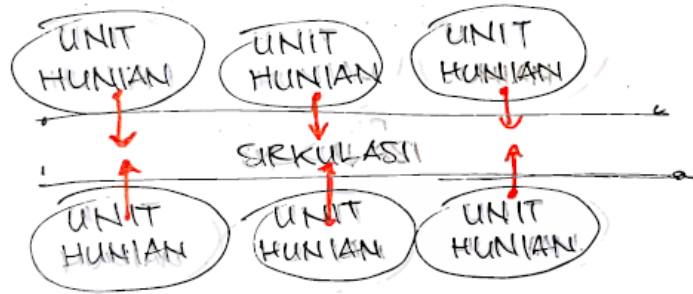 UNIT
HUNIAN
UNIT
HUNIAN
UNIT
HUNIAN
SIRKULASI
UNIT
HUNIAN
UNIT
HUNIAN
UNIT
HUNIAN